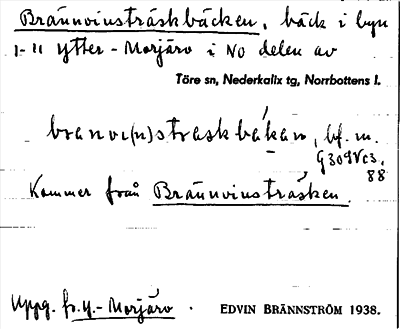 Brännvinsträskbäcken, bäck i byn
I-II Ytter-Morjärv i NO delen av
Töre sn, Nederkalix tg, Norrbottens l.
branvi(n)straskbäkan, bf. m.
G309Vc3.
88
Kommer från Brännvinsträsken.
Uppg. fr. Y.-Morjärv.
EDVIN BRÄNNSTRÖM 1938.